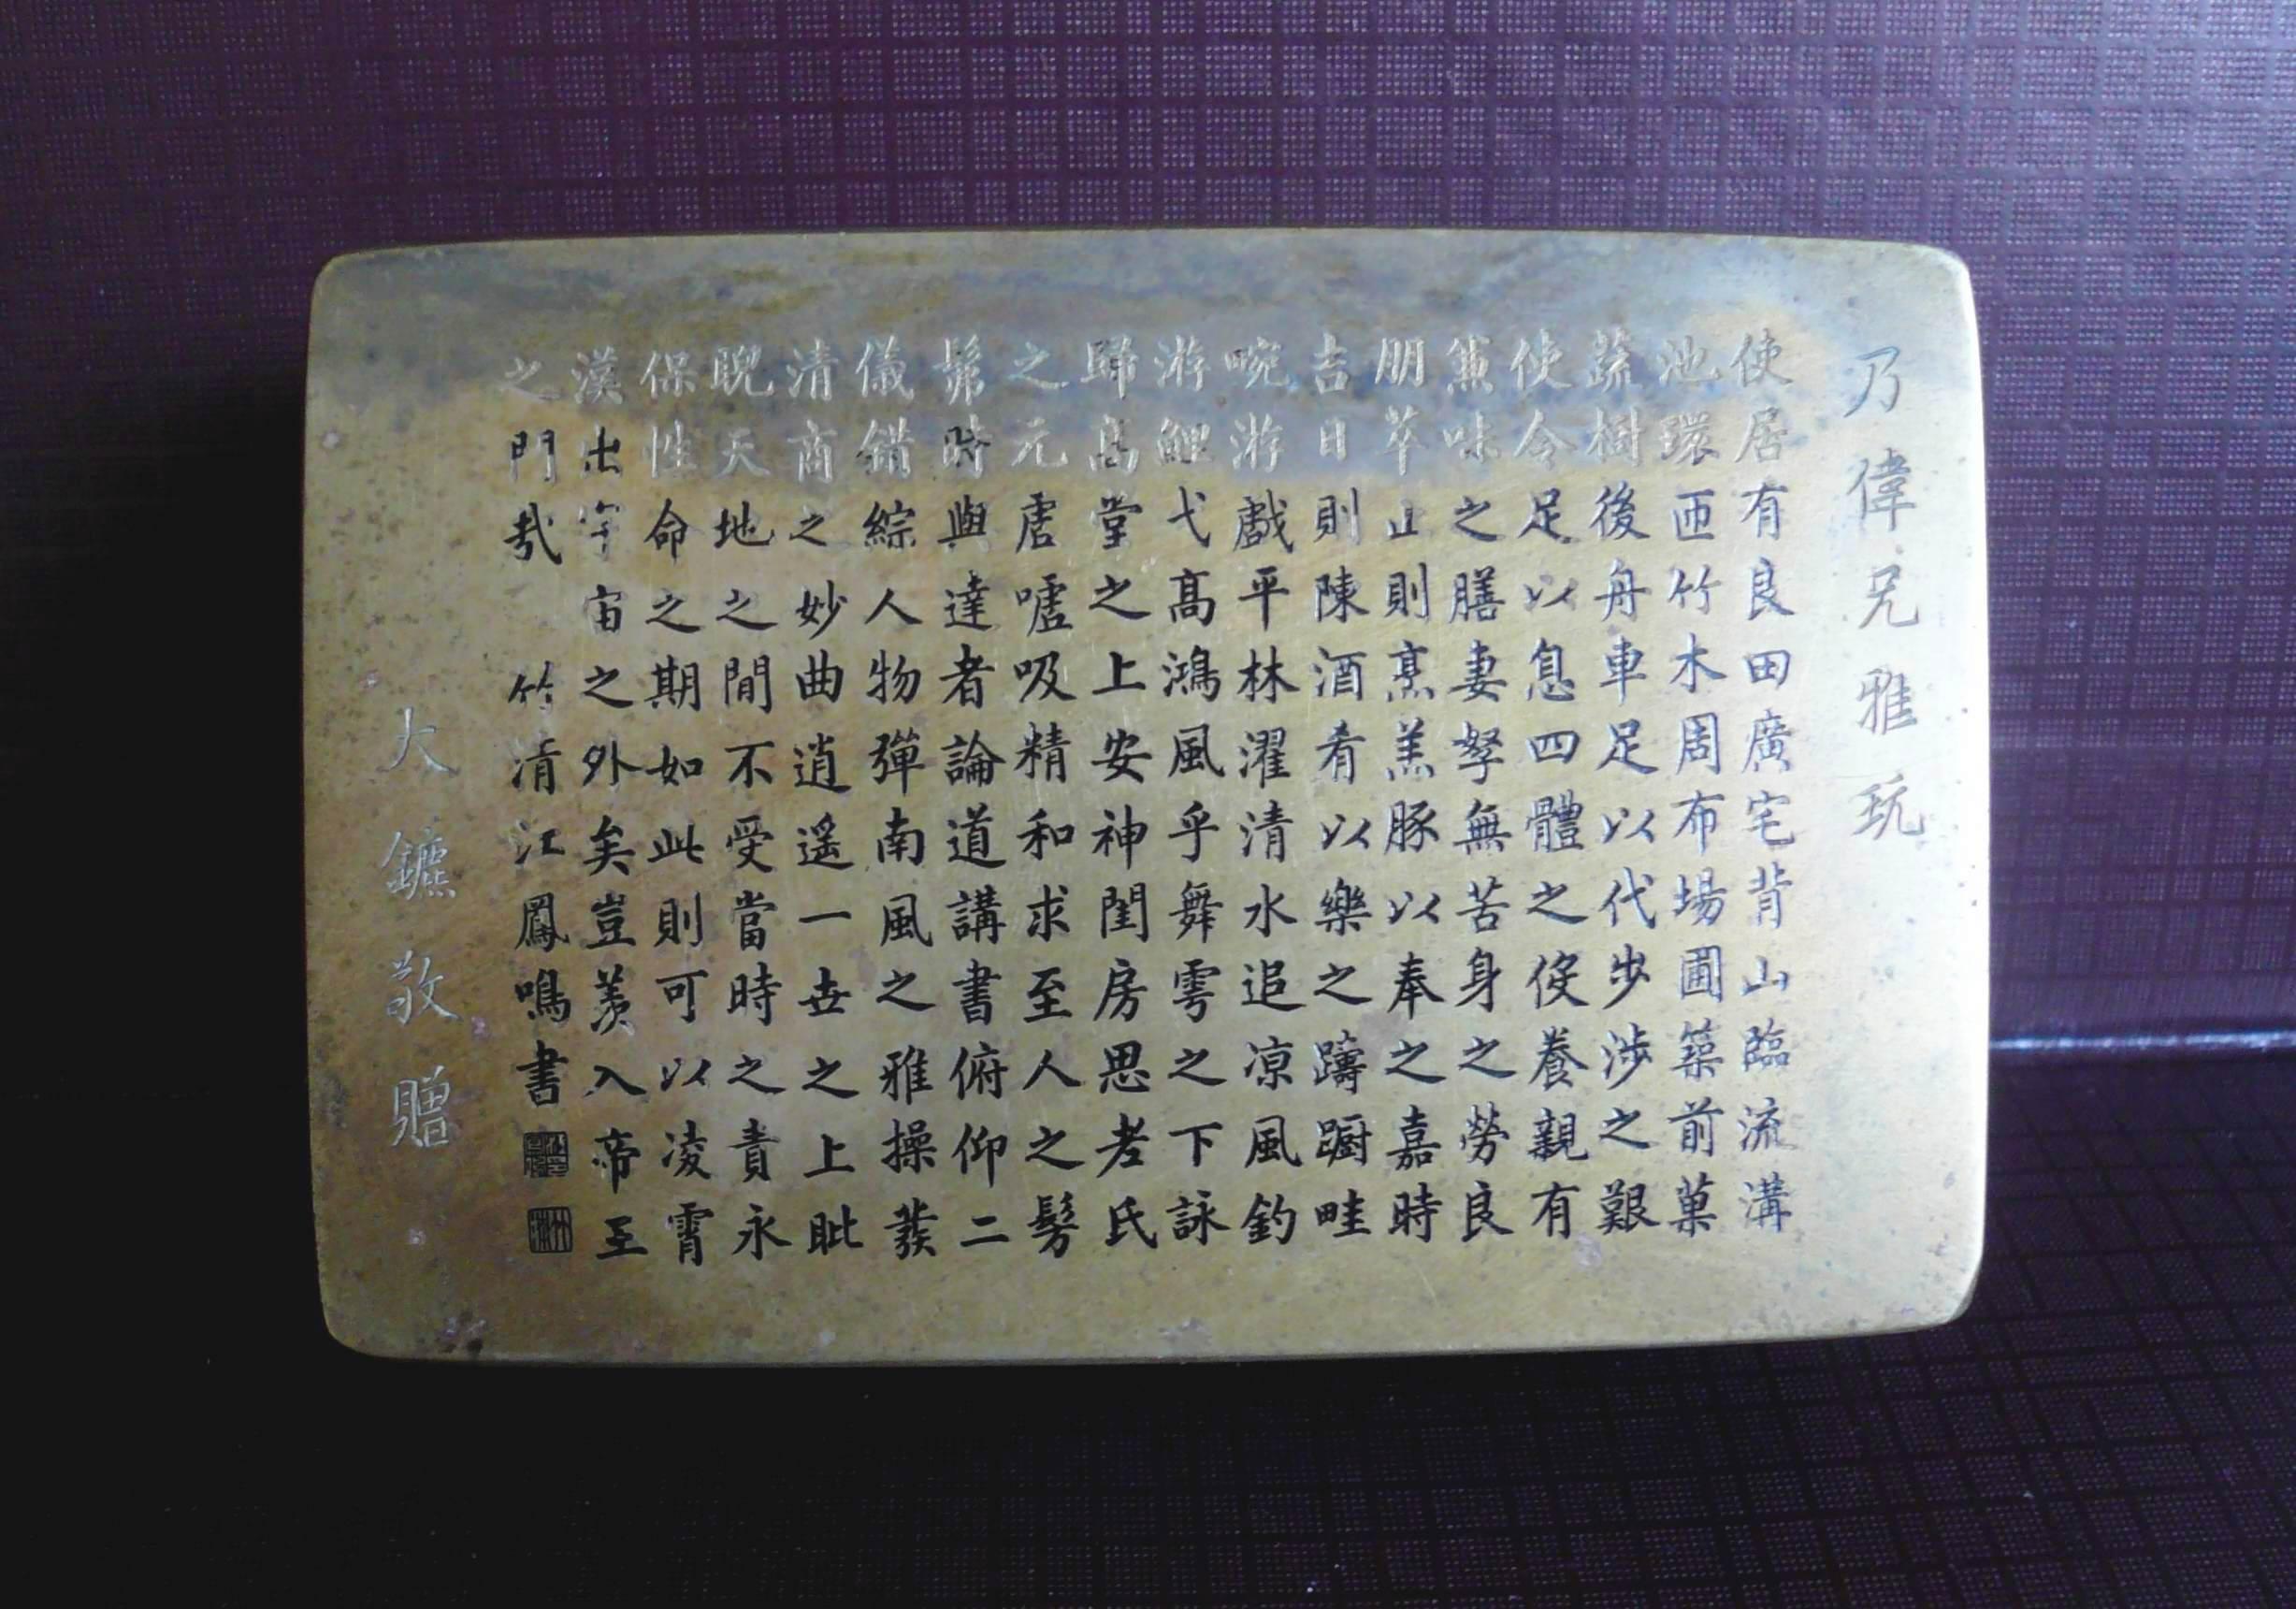 乃偉兄雅玩
使居有良田廣宅背山臨流溝
池環匝竹木周布場圃築前菓
蔬樹後舟車足以代步涉之艱
使令足以息四體之役養親有
兼味之膳妻孥無苦身之勞良
朋萃止則烹羔豚以奉之嘉時
吉日則陳酒肴以樂之躊躕畦
畹游戲平林濯清水追凉風釣
游鯉弋高鴻風乎舞雩之下詠
歸高堂之上安神閨房思老氏
之元虛嘘吸精和求至人之髣
髴時與達者論道講書俯仰二
儀錯綜人物彈南風之雅操發
清商之妙曲逍遙一世之上眦
睨天地之間不受當時之責永
保性命之期如此則可以凌霄
漢出宇宙之外矣豈羨入帝至
之門哉 竹清江鳳鳴書
大鑣敬贈